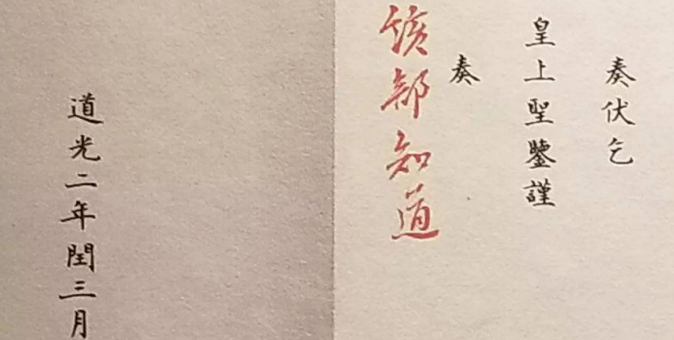 奏伏乞
皇上聖鑒謹
奏
該部知道
道光二年閏三月